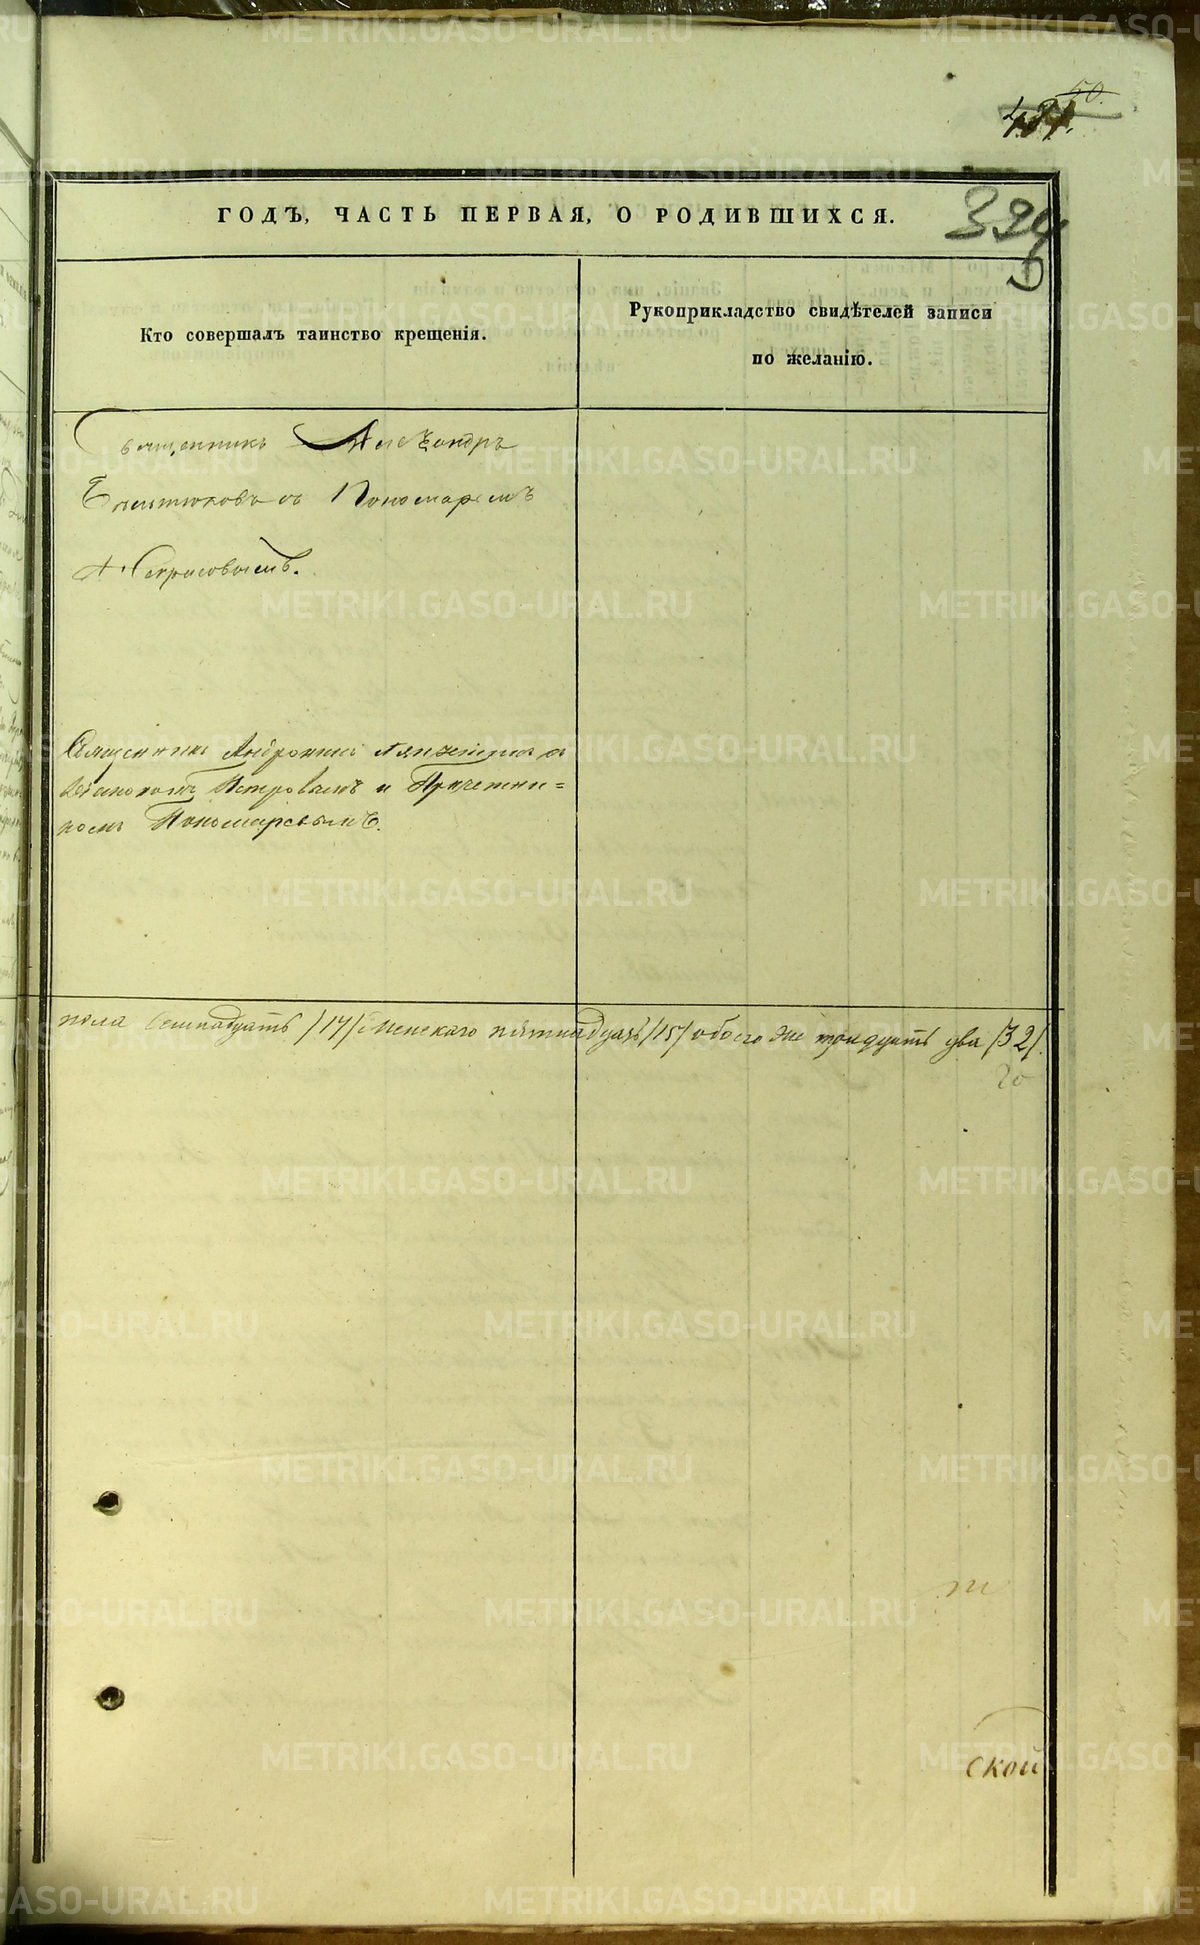 50.
394
ГОДЪ, ЧАСТЬ ПЕРВАЯ, О РОДИВШИХСЯ.
Кто совершалъ таинство крещенія.
Рукоприкладство свидѣтелей записи
по желанію.
Священникъ Александръ
съ Пономаремъ
Некрасовымъ.
Священникъ Андроникъ
Петровымъ и Причетни=
комъ Пономаревымъ.
пола семнадцать /17/ женскаго пятнадцать /15/ обоего же тридцать два /32/.
20
т
ской
METRIKI.GASO-URAL.RU